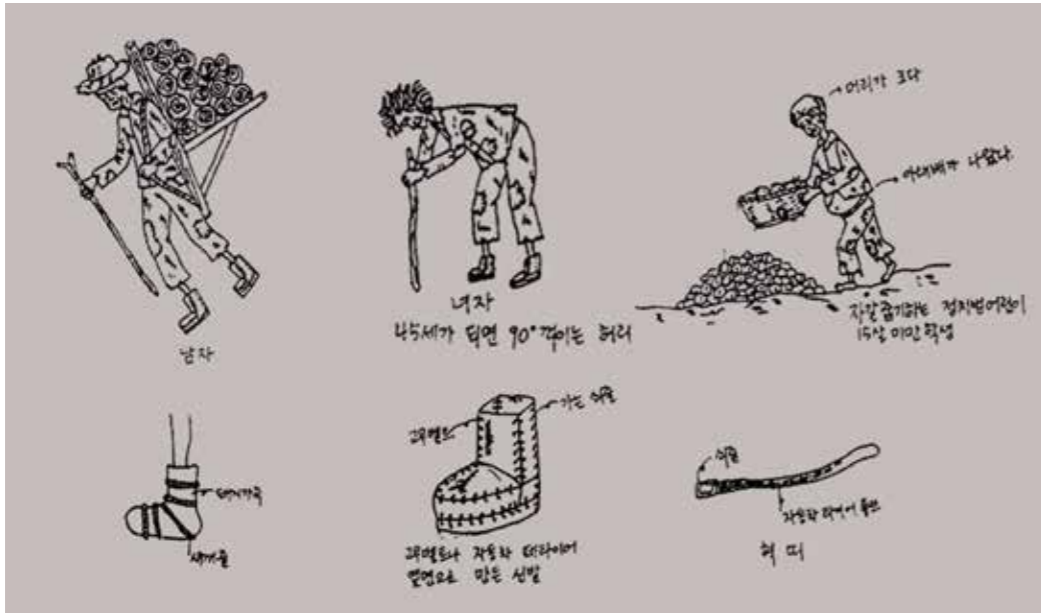 남자
녀자
45세가 되면 90° 꺽이는 허리
머리가 크다
아래배가 나왔다.
자갈줍기하는 정치범어린이
15살 미만 학생
돼지가죽
새끼줄
고무벨트
가는 쇠줄
고무벨트나 자동차 타이어
옆면으로 만든 신발
쇠줄
자동차 타이어 튜브
혁 띠